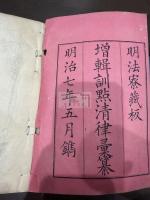 明法寮藏板
增輯訓點清律彙纂
明治七年五月鐫